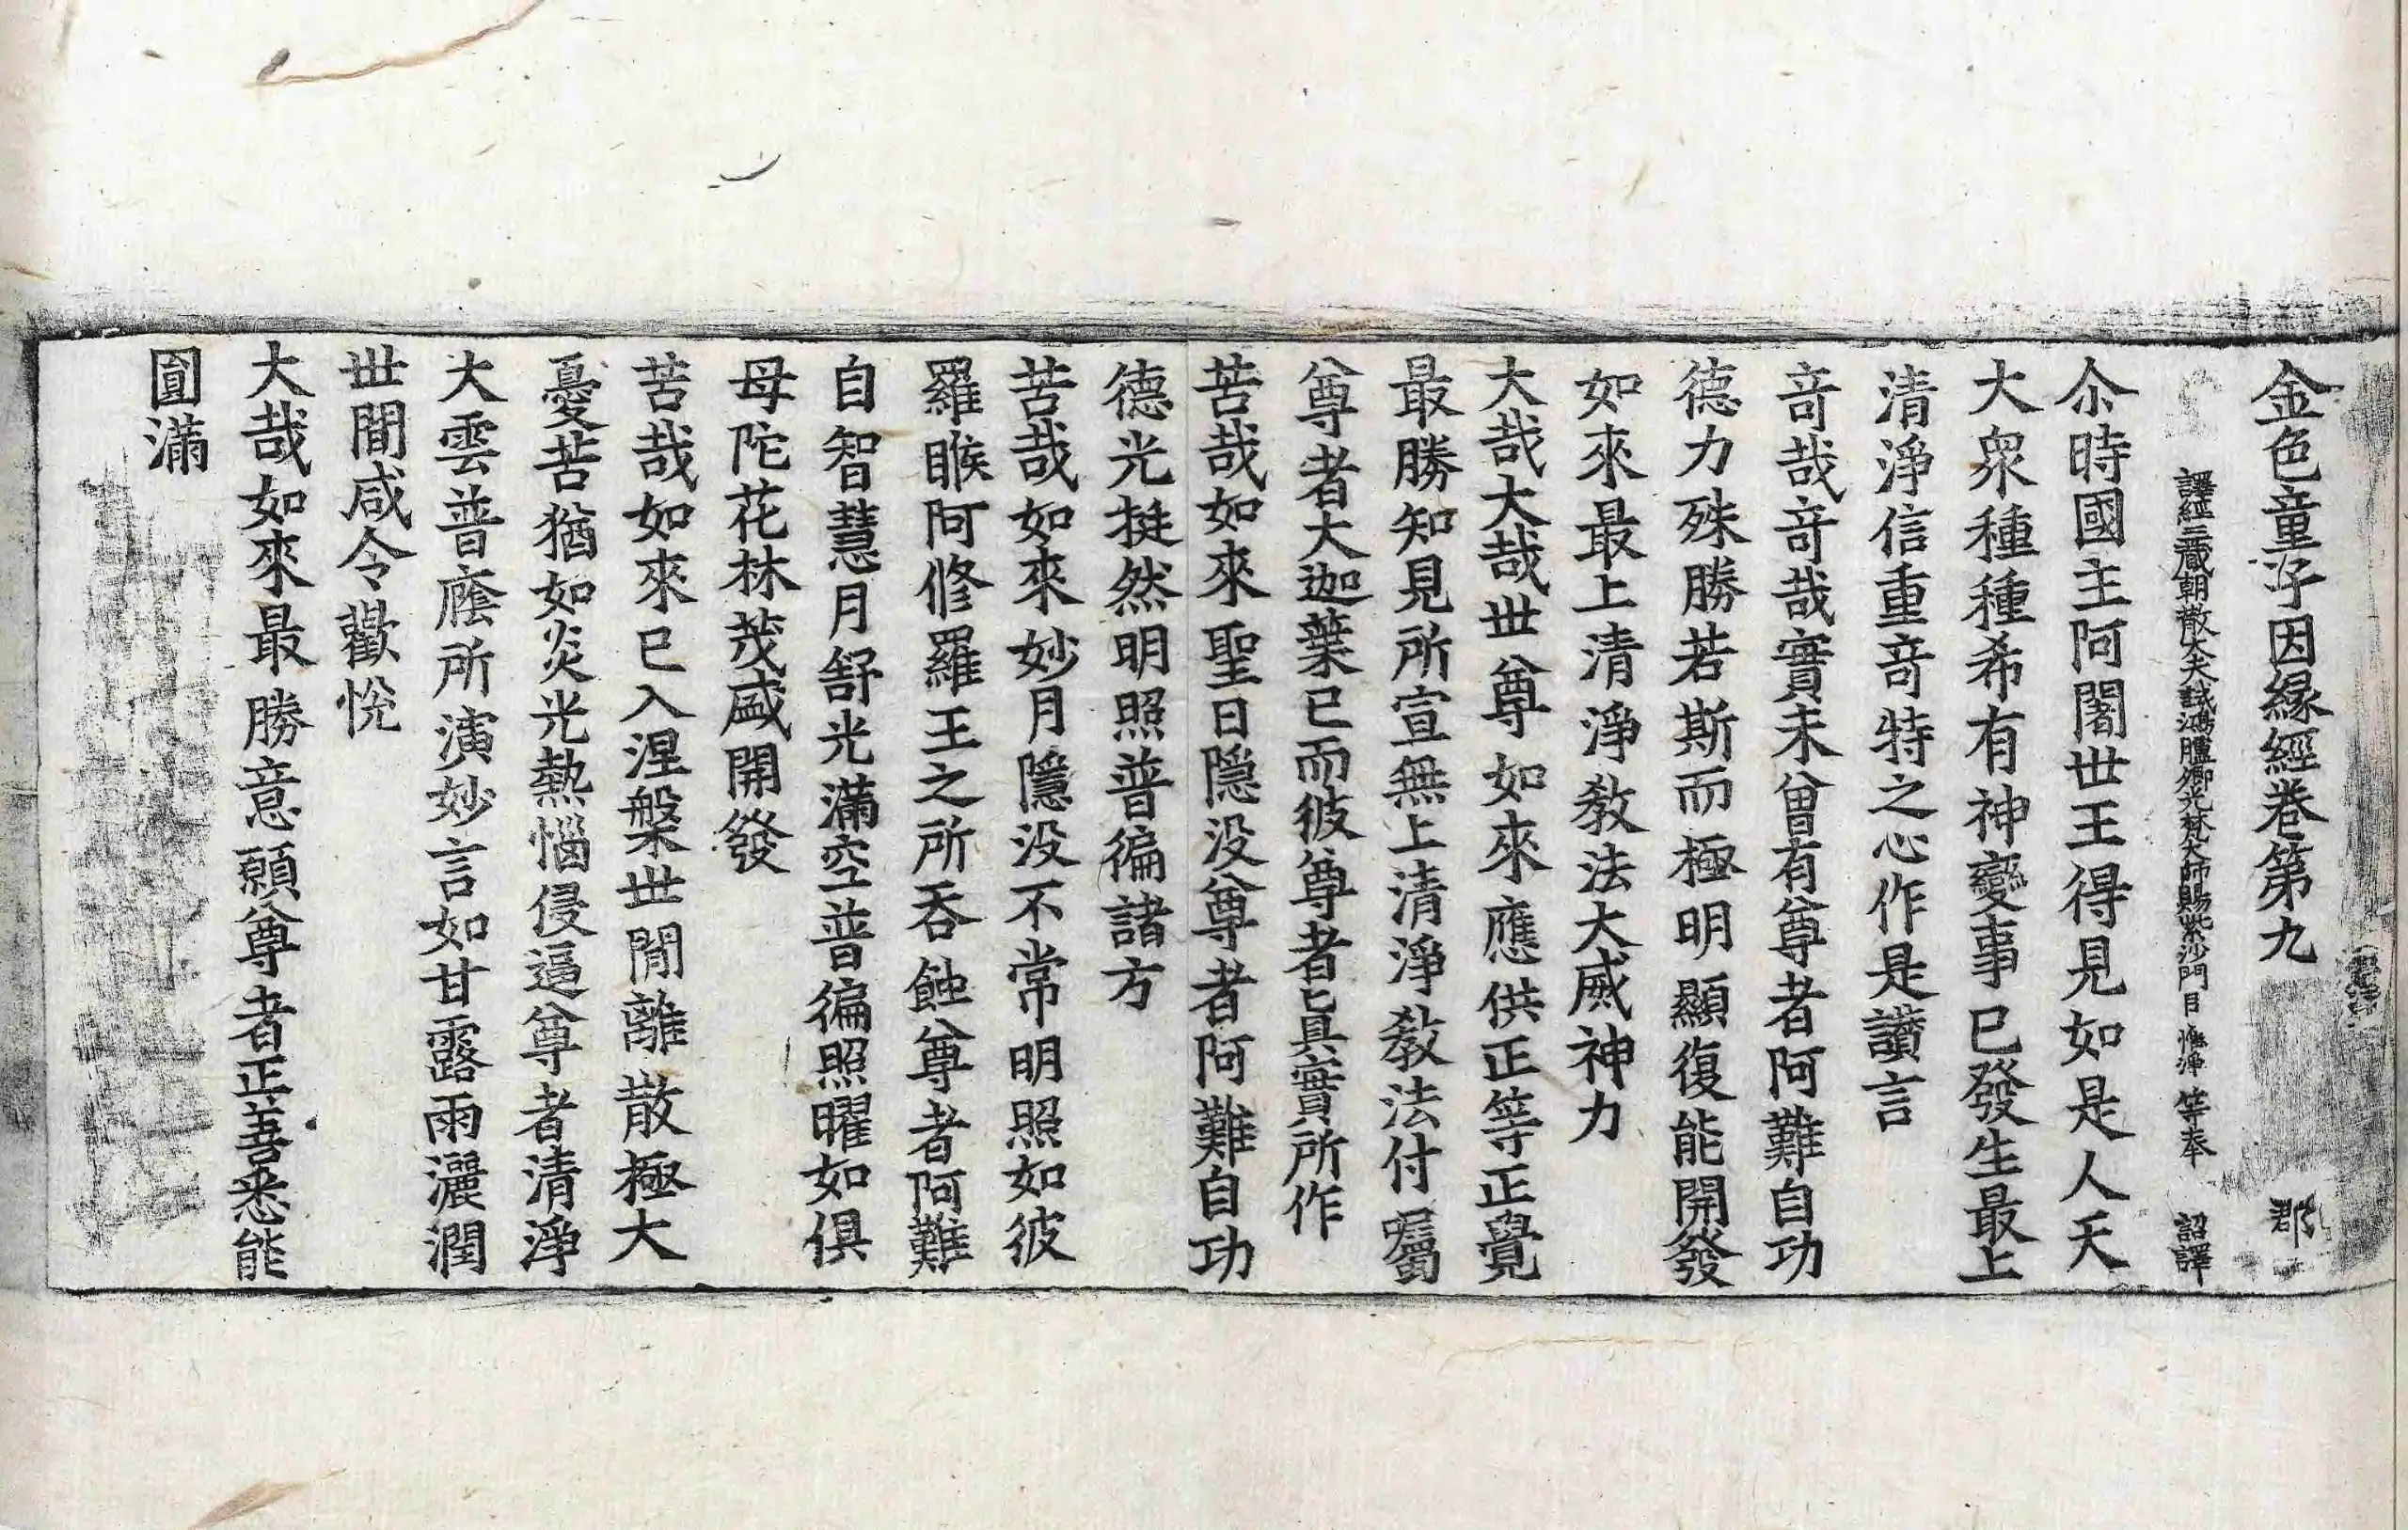 金色童子因緣經卷第九 郡
譯經三藏朝散大夫試鴻臚卿光梵大師賜紫沙門臣惟淨等奉 詔譯
尒時國主阿闍世王得見如是人天
大衆種種希有神變事已發生最上
清淨信重竒特之心作是讚言
竒哉竒哉實未曾有尊者阿難自功
德力殊勝若斯而極明顯復能開發
如來最上清淨教法大威神力
大哉大哉世尊如來應供正等正覺
最勝知見所宣無上清淨教法付囑
尊者大迦葉已而彼尊者眞實所作
苦哉如來聖日隱没尊者阿難自功
德光挺然明照普徧諸方
苦哉如來妙月隱没不常明照如彼
羅睺阿修羅王之所吞蝕尊者阿難
自智慧月舒光滿空普徧照曜如俱
母陀花林茂盛開發
苦哉如來已入涅槃世間離散極大
憂苦猶如炎光熱惱侵逼尊者清淨
大雲普廕所演妙言如甘露雨灑潤
世間咸令歡悅
大哉如來最勝意願尊者正善悉能
圓滿